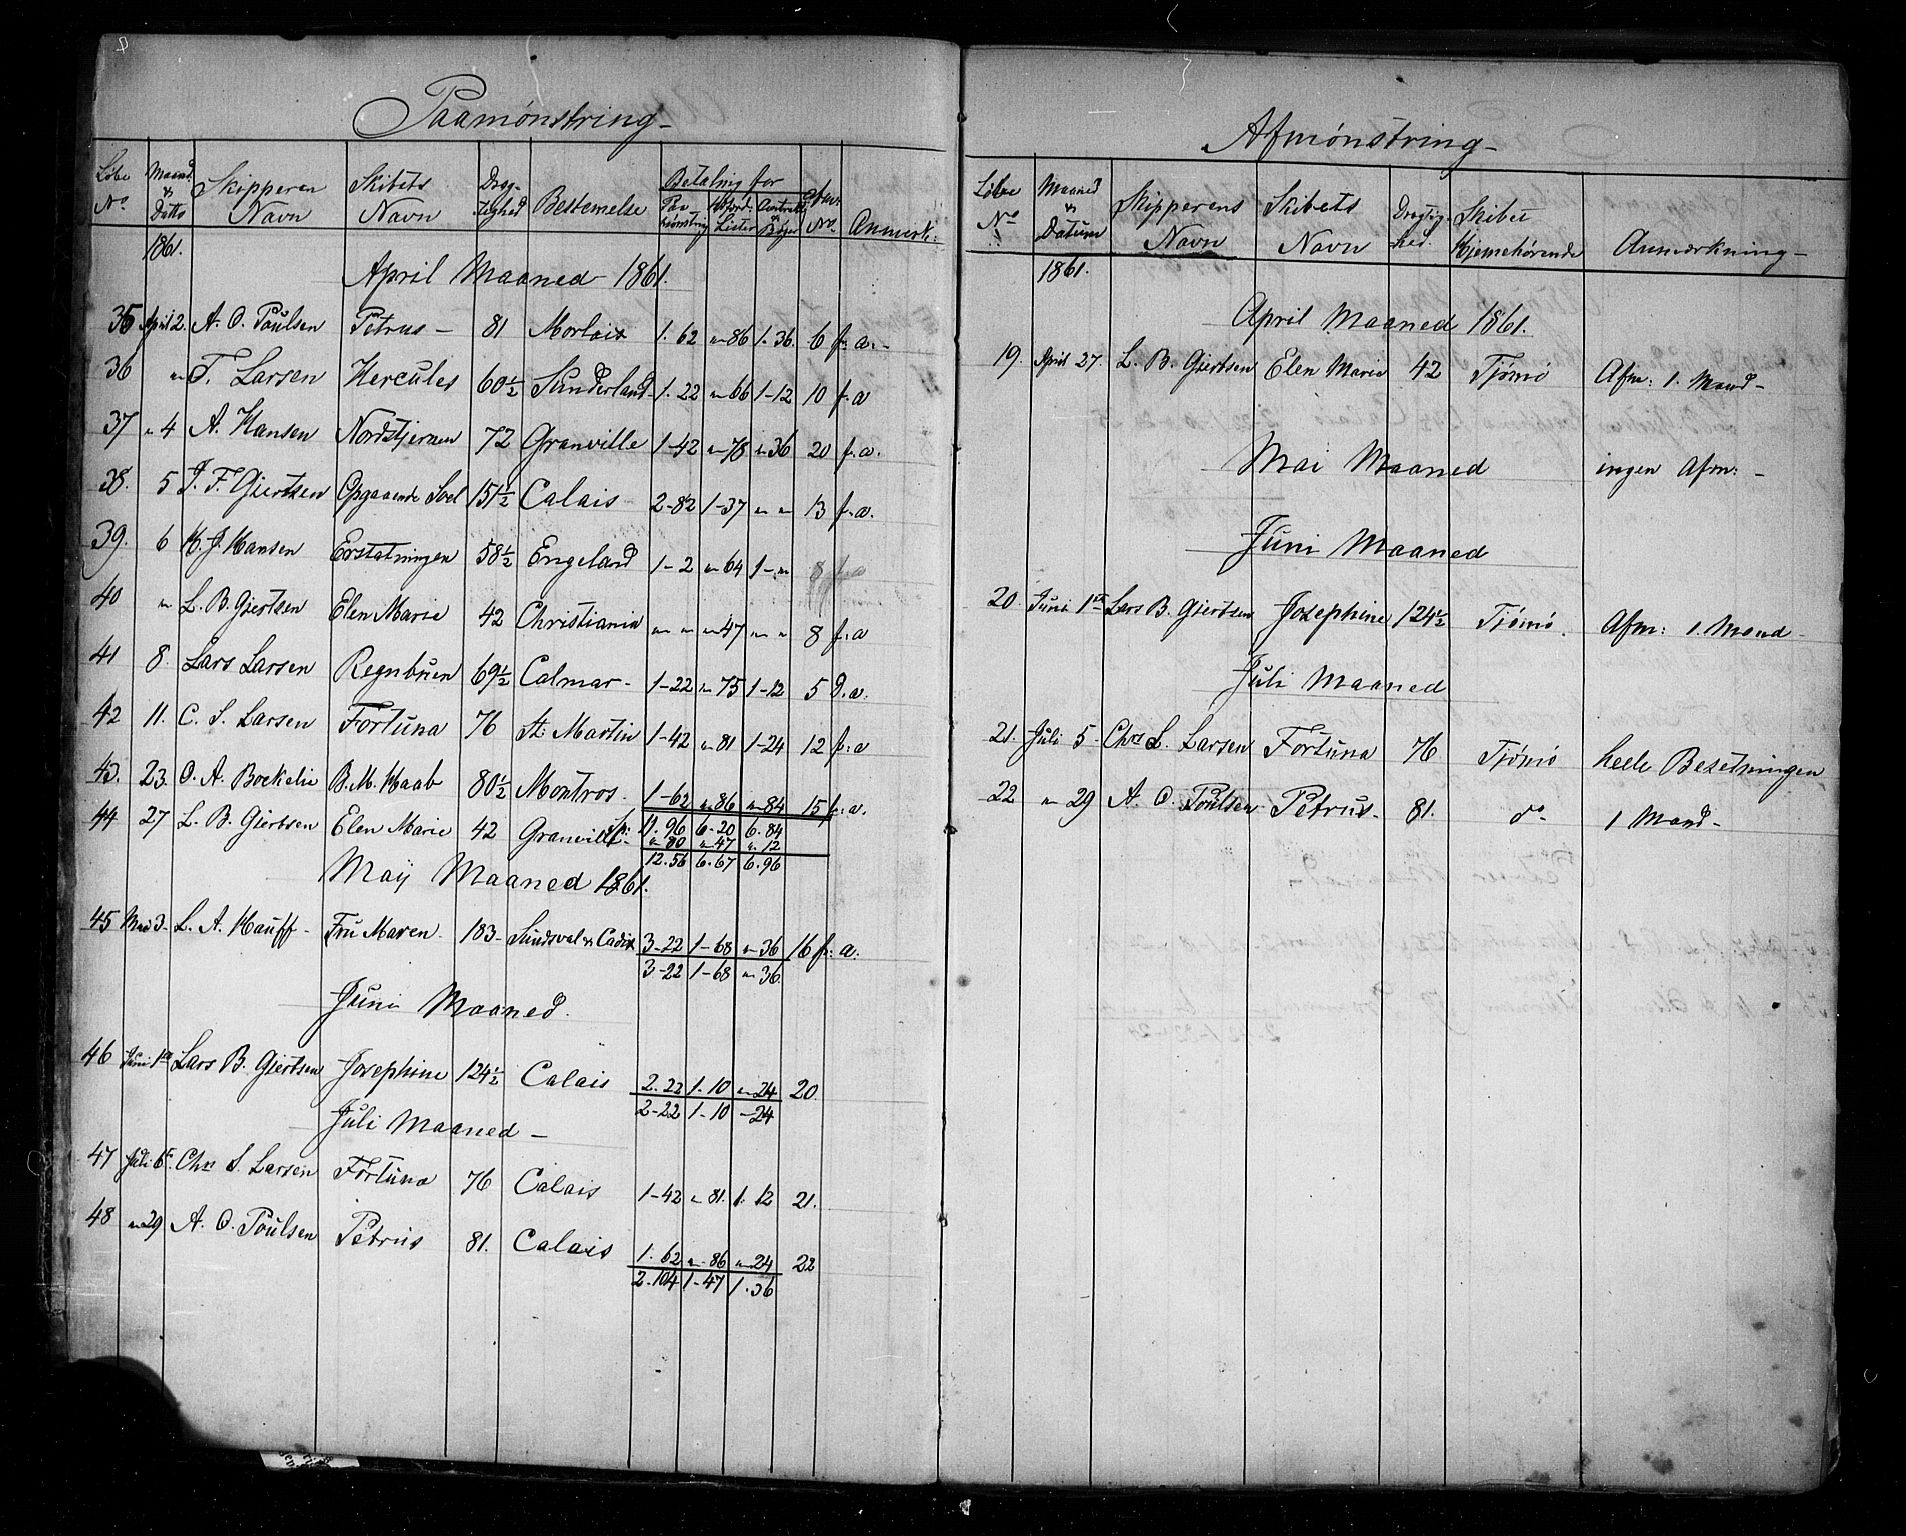 Paamønstring
Løbe No. Maaned & Datto Skipperen Navn Skibets Navn Dræg-tighed Bestemelse Betaling for Paa mønstring Lister Anmærk:
1861.
April Maaned 1861.
35 April 2. A. O. Poulsen Petrus 81 Morlaix 1. 62 „ 86 1. 36. 6 f. a.
36 „ T. Larsen Hercules 60½ Sunderland 1. 22 „ 66 1-12 10 f. a
37 „ 4 A. Hansen Nordstjernen 72 Granville 1-42 „ 78 „ 36 20 f. a.
38. 5 J. F. Gjertsen Opgaaende Soel 151½ Calais 2-82 1-37 „ „ 13 f. a.
39. 6 H. J. Hansen Erstatningen 58½ Engeland 1-2 „ 64 1-„ 8 f a
40 „ L. B. Gjertsen Elen Marie 42 Christiania „ „ „ 47 „ „ 8 f. a
41 8 Lars Larsen Regnbuen 69½ Calmar 1-22 „ 75 1-12 5 d. a.
42 11. C. L. Larsen Fortuna 76 St. Martin 1-42 „ 81 1-24 12 f. a
43. 23. O. A. Bockelie B. M. Kaab 80½ Montros. 1-62 „ 86 „ 84 15 f. a.
44 27 L. B. Gjertsen Elen Marie 42 Granville 11. 96 6-20 6. 84
„ 80 „ 47 „ 12
12. 56 6. 67 6. 96
Maij Maaned 1861.
45 Mai 3. L. A. Hauff Fru Maren 183 Sundsval & Cadix 3-22 1-68 „ 36 16 f. a.
3-22 1-68 „ 36.
Juni Maaned.
46 Juni 1ste Lars B. Gjertsen Josephine 124½ Calais 2. 22 1. 10 „ 24 20
2-22 1-10 - 24
Juli Maaned -
47 Juli 6. Chr. L. Larsen Fortuna 76 Calais 1-42 „ 81. 1. 12 21.
48 „ 29 A. O. Poulsen Petrus 81. Calais 1. 62 „ 86 „ 24 22
2. 104 1-47 1. 36
Afmønstring
Løbe No Maaned & Datum Skipperens Navn Skibets Navn Drægtig-hed. Skibet Hjemmehørende Anmærkning
1861.
April Maaned 1861.
19. April 27. L. B. Gjertsen Elen Marie 42 Tjømø Afm: 1. Mand-
Mai Maaned ingen Afm: -
Juni Maaned
20. Juni 1ste Lars B. Gjertsen Josephine 124½ Tjømø. Afm: 1. Mand-
Juli Maaned
21. Juli 5- Chr. L. Larsen Fortuna 76 Tjømø heele Besetningen
22 „ 29 A. O. Poulsen Petrus. 81. do 1 Mand-